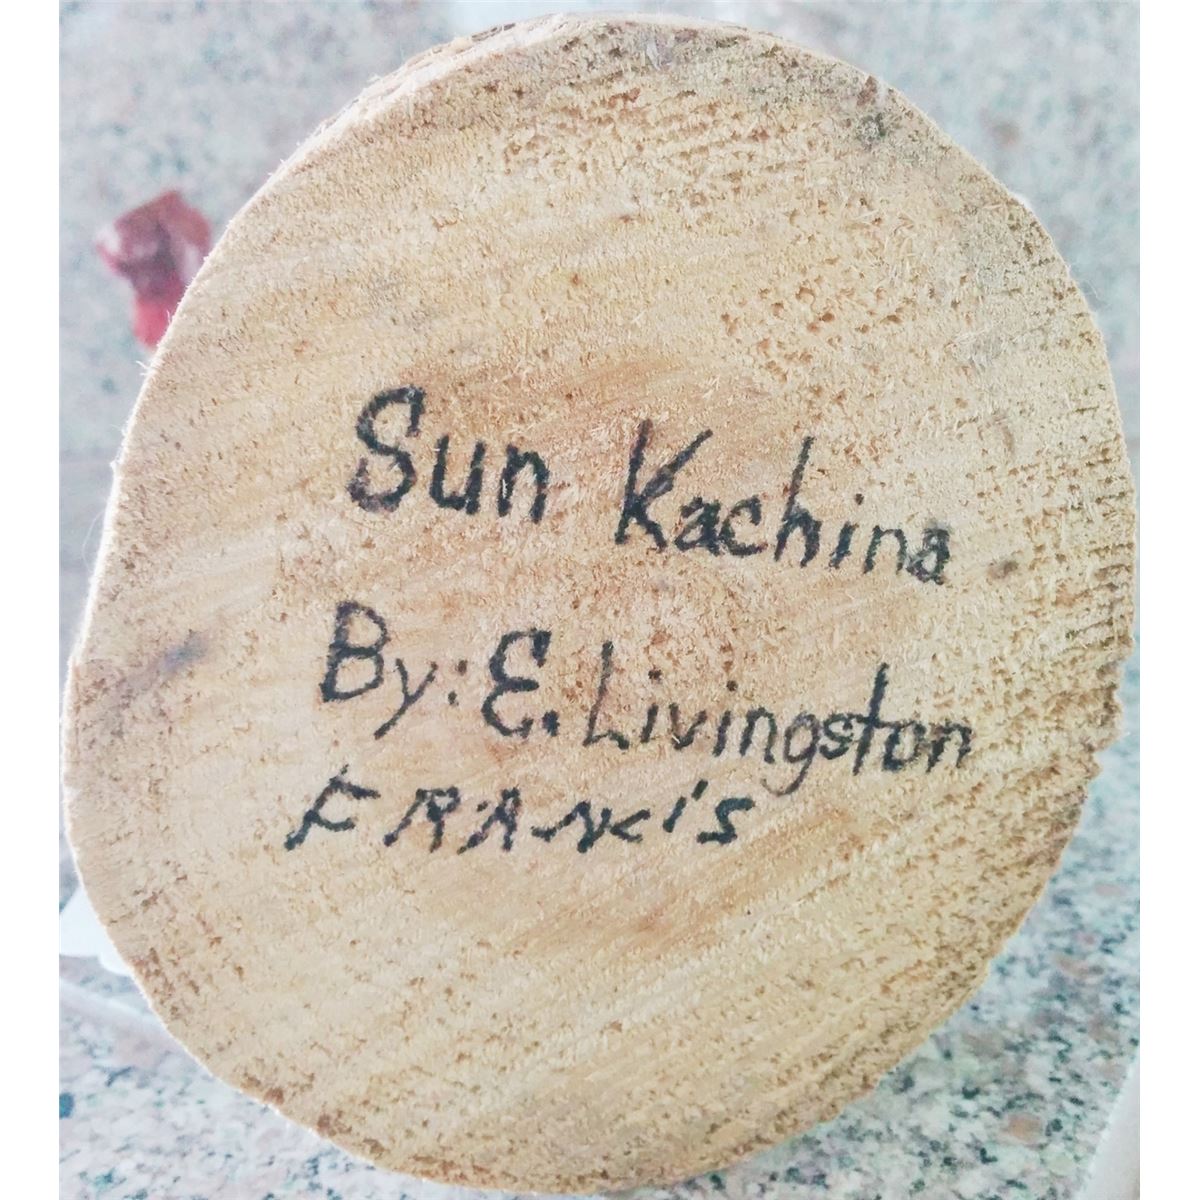 Sun Kachina
By: E. Livingston
FRANCIS